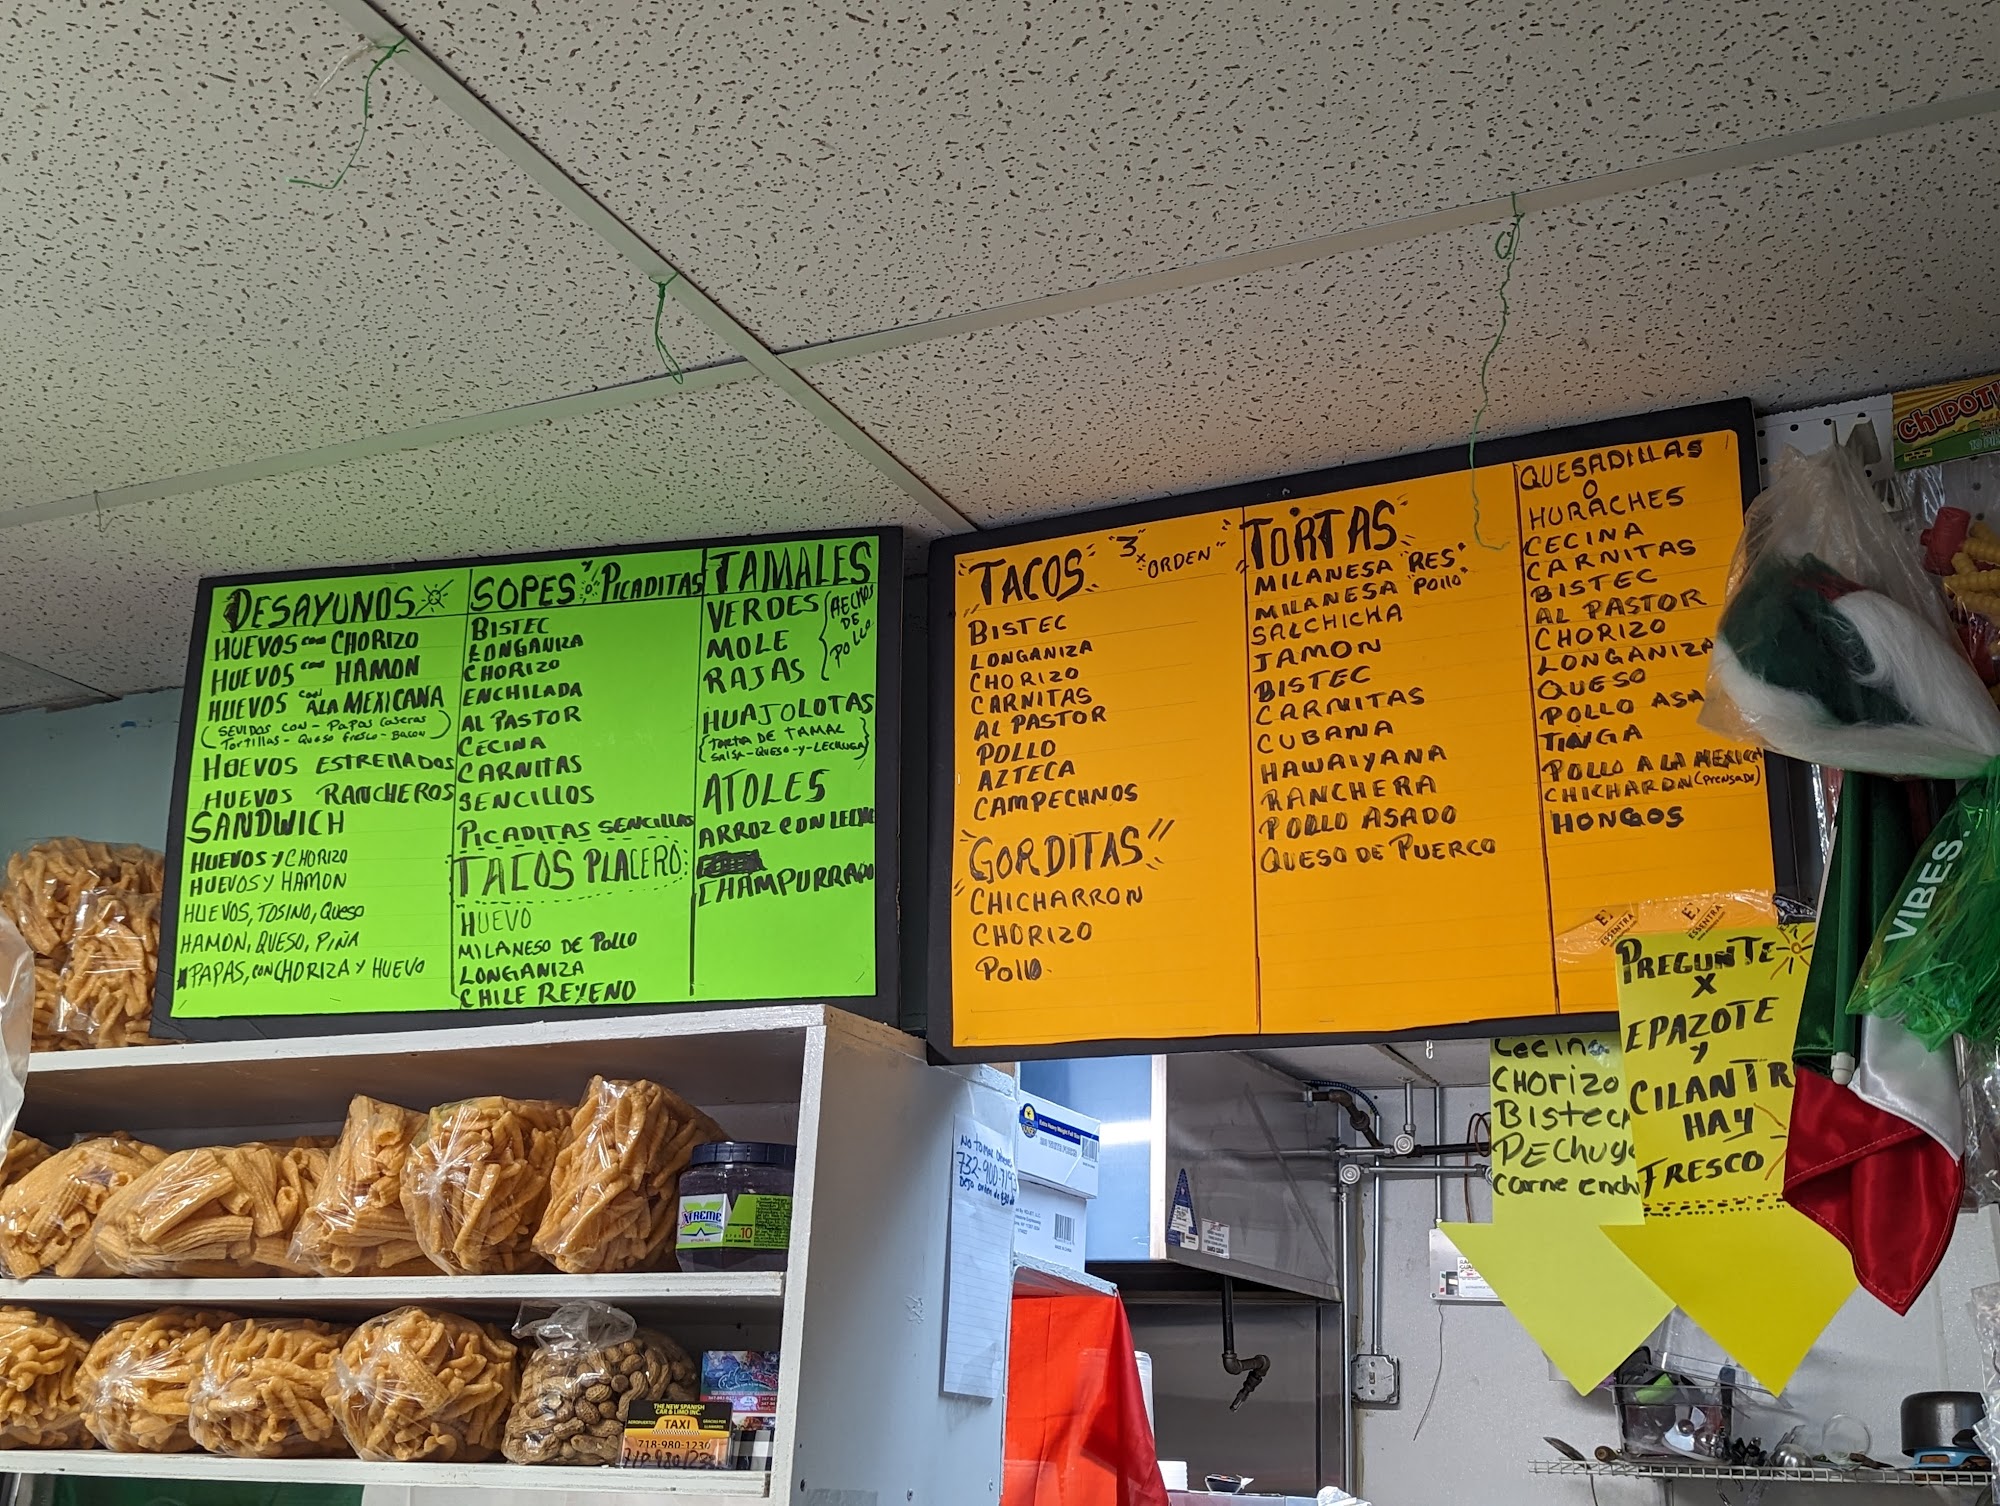 DESAYUNOS
HUEVOS con CHORIZO
HUEVOS con HAMON
HUEVOS con ALA MEXICANA
(SEVIDOS CON - PAPAS CASERAS
TORTILLAS - QUESO FRESCO - BACON)
HUEVOS ESTRELLADOS
HUEVOS RANCHEROS
SANDWICH
HUEVOS Y CHORIZO
HUEVOS Y HAMON
HUEVOS, TOSINO, QUESO
HAMON, QUESO, PIÑA
PAPAS, con CHORIZA Y HUEVO
SOPES Y/O PICADITAS
BISTEC
LONGANIZA
CHORIZO
ENCHILADA
AL PASTOR
CECINA
CARNITAS
SENCILLOS
PICADITAS SENCILLAS
TACOS PLACERO:
HUEVO
MILANESO DE POLLO
LONGANIZA
CHILE REYENO
TAMALES
VERDES
MOLE
RAJAS
(HECHOS
DE
POLLO
HUAJOLOTAS
(TORTA DE TAMAL
SALSA-QUESO-Y-LECHUGA)
ATOLES
ARROZ CON LECHE
CHAMPURRADO
"TACOS" "3 x ORDEN"
BISTEC
LONGANIZA
CHORIZO
CARNITAS
AL PASTOR
POLLO
AZTECA
CAMPECHNOS
"GORDITAS"
CHICHARRON
CHORIZO
POLLO
"TORTAS"
MILANESA "RES"
MILANESA "POLLO"
SALCHICHA
JAMON
BISTEC
CARNITAS
CUBANA
HAWAIYANA
RANCHERA
POLLO ASADO
QUESO DE PUERCO
QUESADILLAS
O
HURACHES
CECINA
CARNITAS
BISTEC
AL PASTOR
CHORIZO
LONGANIZA
QUESO
POLLO ASA
TINGA
POLLO A LA MEXICA
CHICHARON (PRENSADO)
HONGOS
ESSENTRA
ESSENTRA
PREGUNTE
X
EPAZOTE
Y
CILANTR
HAY
FRESCO
Cecina
CHORIZO
Bistec
PECHUG
Carne ench
CHIPOTL
VIBES
NO TOMAR
732-900-7193
XTREME
10
THE NEW SPANISH
CAR & LIMO INC.
AEROPUERTOS
TAXI
GRACIAS POR
LLAMARNOS
718-980-1230